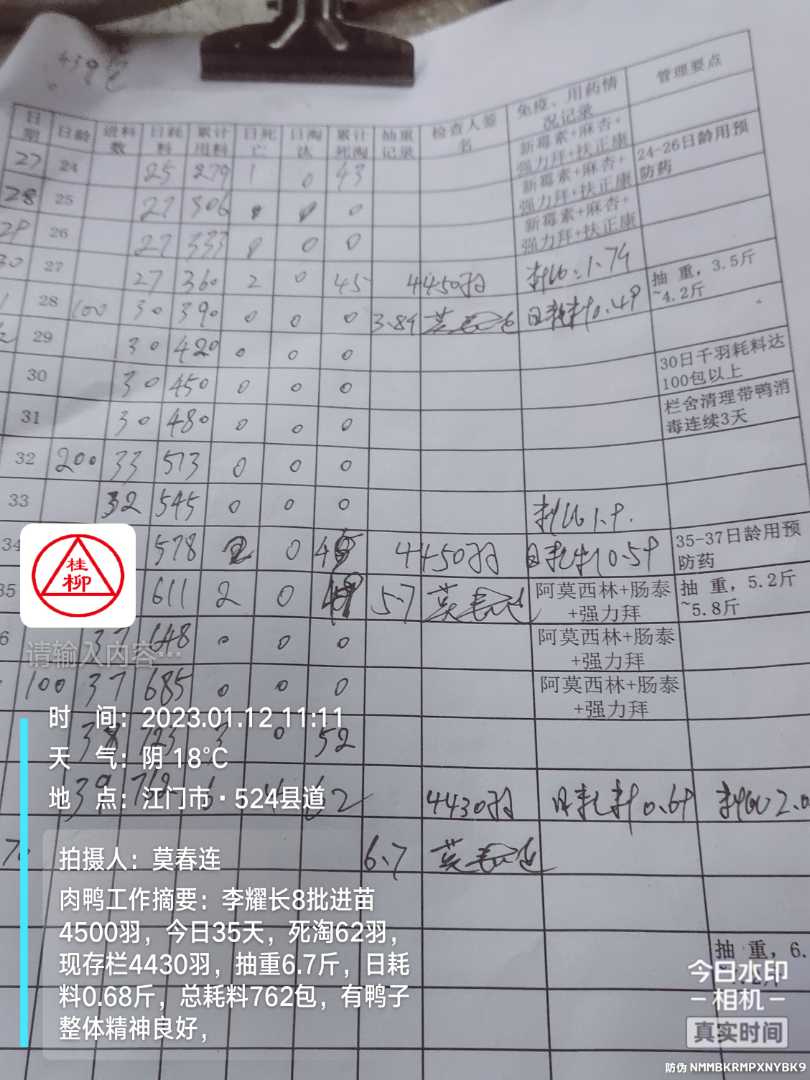 439包
日期 日龄 进料数 日耗料 累计用料 日死亡 日淘汰 累计死淘 抽重记录 检查人签名 免疫、用药情况记录 管理要点
27 24 25 279 1 0 43 新霉素+麻杏+强力拜+扶正康 24-26日龄用预防药
28 25 27 306 0 0 0 新霉素+麻杏+强力拜+扶正康
29 26 27 333 0 0 0 新霉素+麻杏+强力拜+扶正康
30 27 27 360 2 0 45 4450羽 料比:1.74
1 28 100 30 390 0 0 0 3.84 莫春连 日耗料0.49 抽重，3.5斤~4.2斤
29 30 420 0 0 0
30 30 450 0 0 0 30日千羽耗料达100包以上
31 30 480 0 0 0 栏舍清理带鸭消毒连续3天
32 200 33 513 0 0 0
33 32 545 0 0 0 料比1.9.
34 578 2 0 4450羽 日耗料0.59 35-37日龄用预防药
35 611 2 0 49 5.7 莫春连 阿莫西林+肠泰+强力拜 抽重，5.2斤~5.8斤
6 37 648 0 0 0 阿莫西林+肠泰+强力拜
100 37 685 0 0 0 阿莫西林+肠泰+强力拜
38 723 3 0 52
39 762 6 4 62 4430羽 日耗料0.68 料比2.0
6.7 莫春连
抽重，6.
桂柳
请输入内容…
时 间：2023.01.12 11:11
天 气：阴 18℃
地 点：江门市·524县道
拍摄人：莫春连
肉鸭工作摘要：李耀长8批进苗
4500羽，今日35天，死淘62羽，
现存栏4430羽，抽重6.7斤，日耗
料0.68斤，总耗料762包，有鸭子
整体精神良好，
今日水印
相机
真实时间
防伪 NMMBKRMPXNYBK9